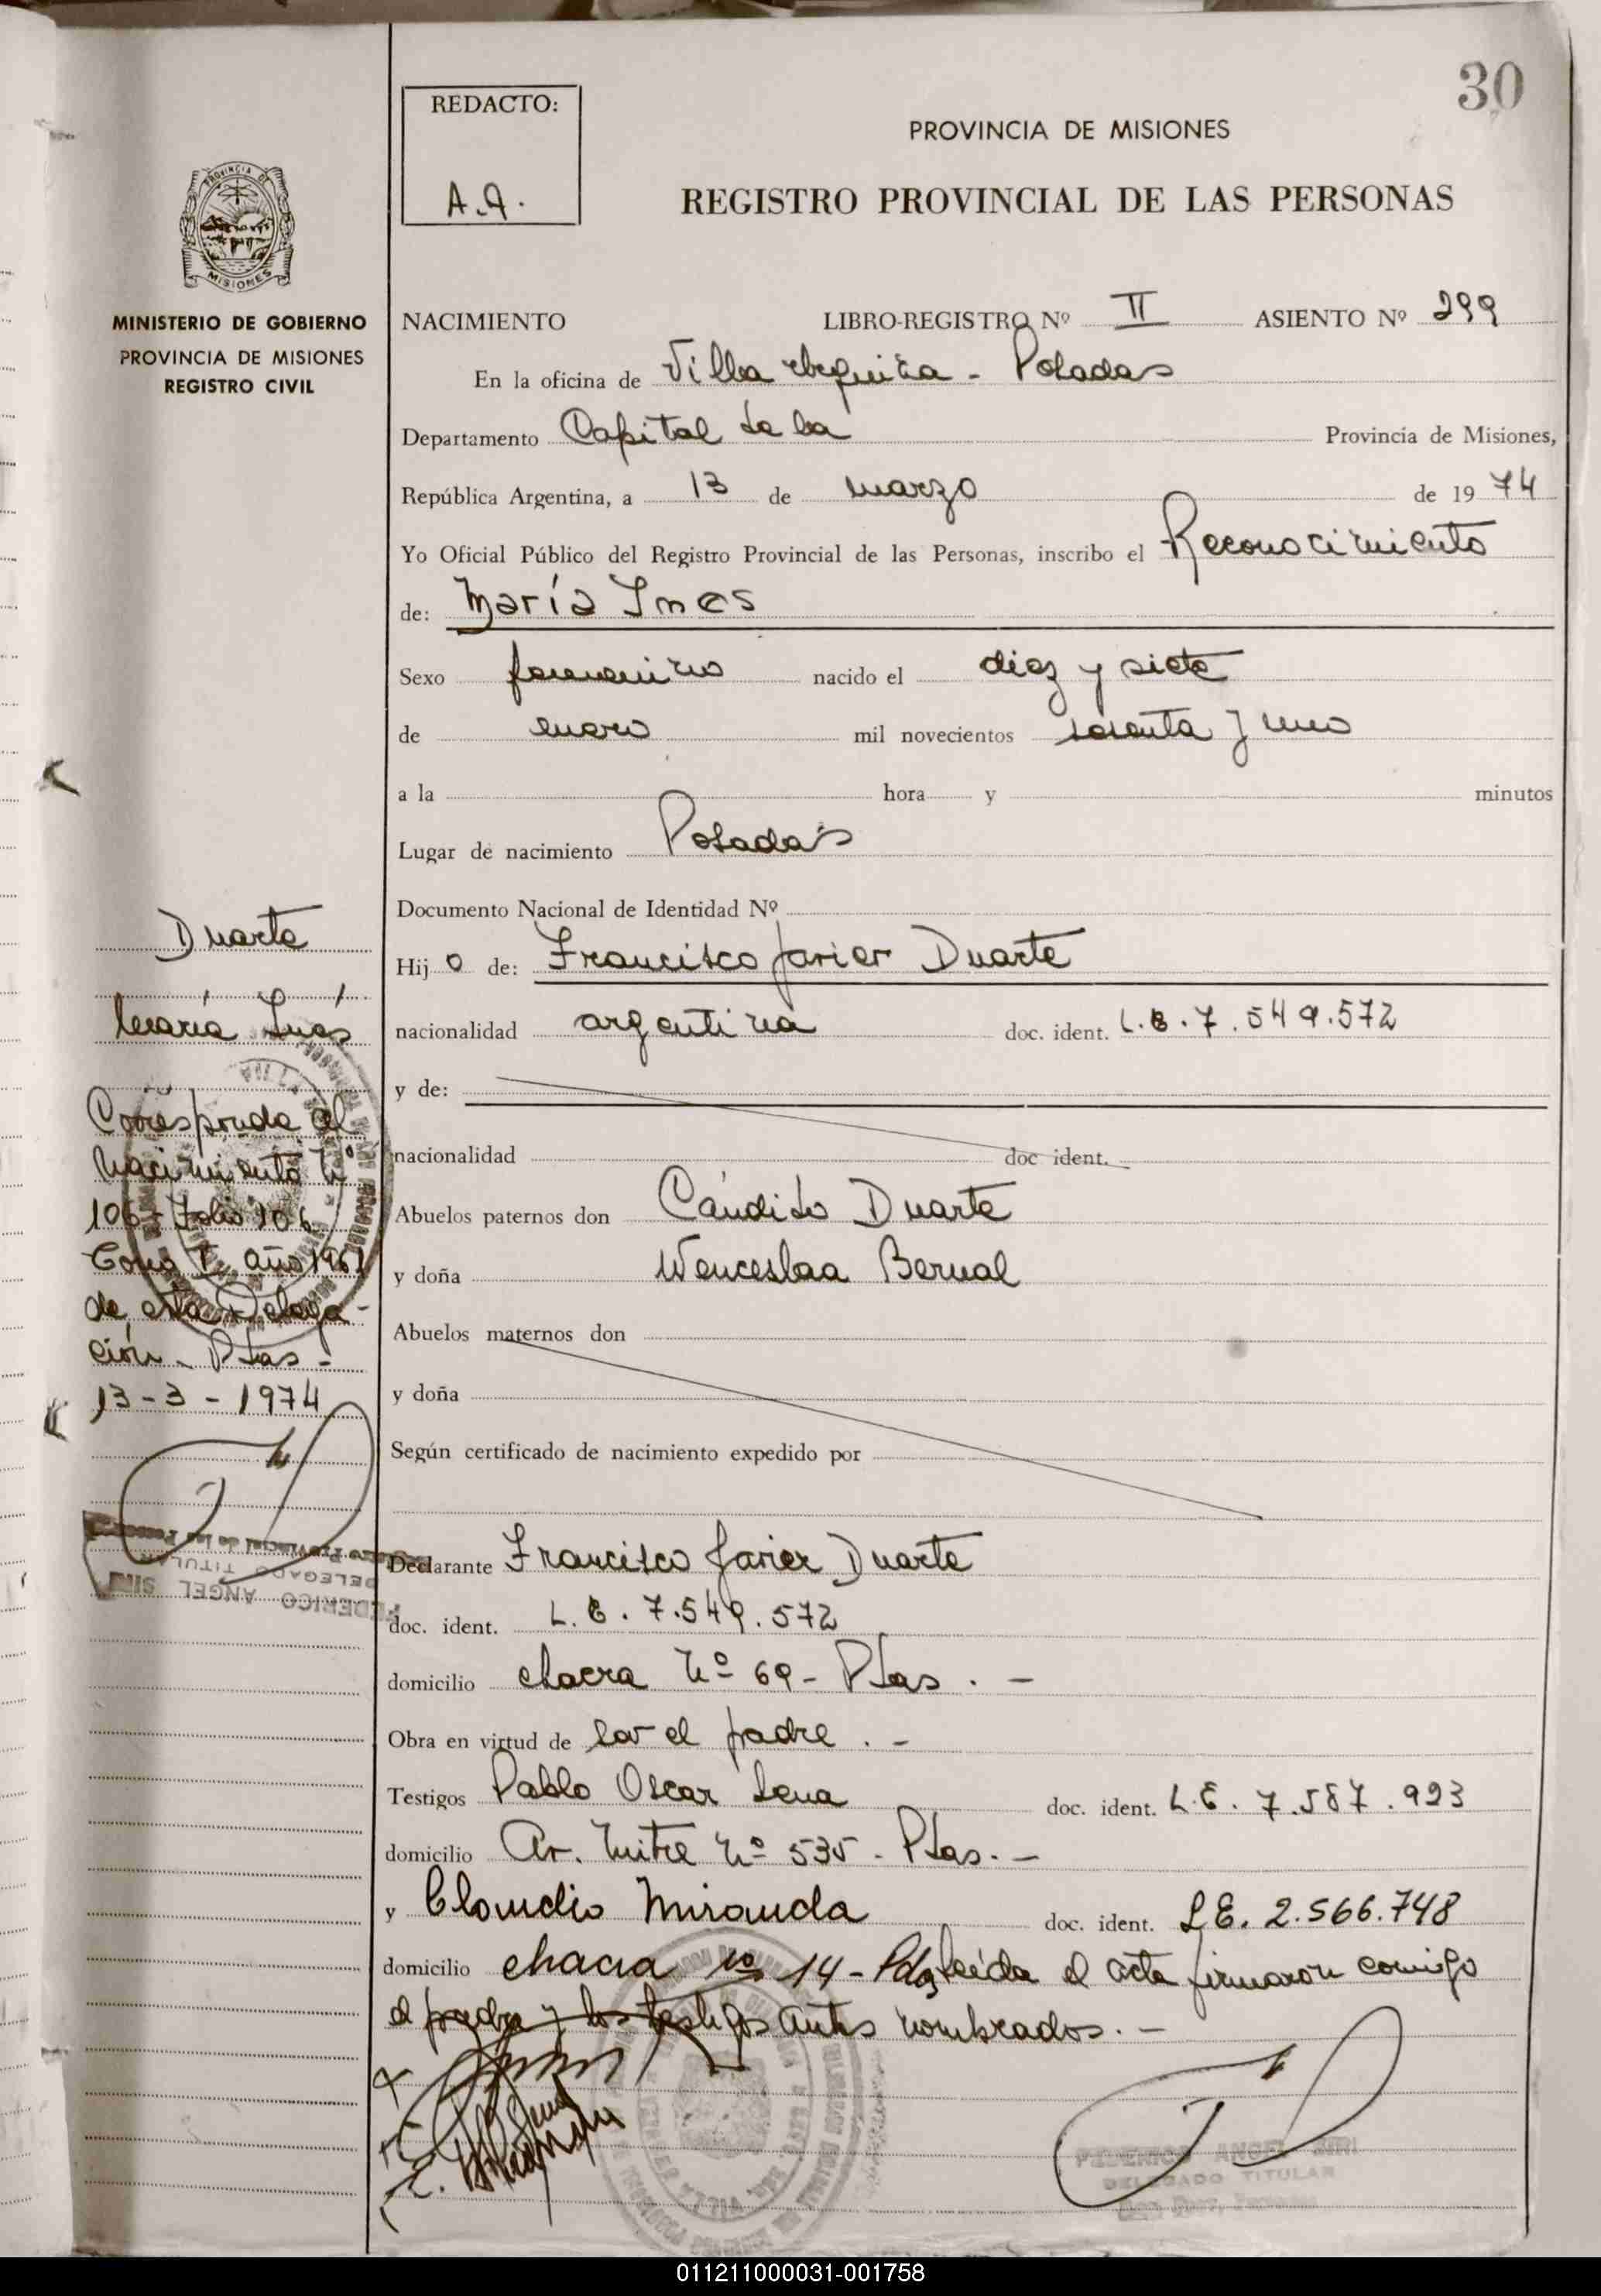 30
REDACTO:
A.A.
PROVINCIA DE MISIONES
REGISTRO PROVINCIAL DE LAS PERSONAS
PROVINCIA DE
MISIONES
MINISTERIO DE GOBIERNO
PROVINCIA DE MISIONES
REGISTRO CIVIL
NACIMIENTO LIBRO-REGISTRO Nº II ASIENTO Nº 299
En la oficina de Villa Urquiza - Posadas
Departamento Capital de la Provincia de Misiones,
República Argentina, a 13 de marzo de 1974
Yo Oficial Público del Registro Provincial de las Personas, inscribo el Reconocimiento
de: María Ines
Sexo femenino nacido el diez y siete
de enero mil novecientos sesenta y uno
a la hora y minutos
Lugar de nacimiento Posadas
Documento Nacional de Identidad Nº
Hijo de: Francisco Javier Duarte
nacionalidad argentina doc. ident. L.E. 7.549.572
y de:
nacionalidad doc ident.
Abuelos paternos don Cándido Duarte
y doña Wenceslaa Bernal
Abuelos maternos don
y doña
Según certificado de nacimiento expedido por
Declarante Francisco Javier Duarte
doc. ident. L.E. 7.549.572
domicilio chacra Nº 69 - Pdas. -
Obra en virtud de ser el padre. -
Testigos Pablo Oscar Sena doc. ident. L.E. 7.587.993
domicilio Av. Mitre Nº 535 - Pdas. -
y Claudio Miranda doc. ident. L.E. 2.566.748
domicilio chacra nº 14 - Pdas Leída el acta firmaron conmigo
el padre y los testigos antes nombrados. -
FEDERICO ANGEL SIRI
DELEGADO TITULAR
Duarte
María Inés
Corresponde al
Nacimiento Nº
106 - Folio 106
Tomo I año 1961
de esta Delega-
ción - Pdas -
13-3-1974
Provincial de las Personas
DELEGADO TITULAR
FEDERICO ANGEL SIRI
011211000031-001758